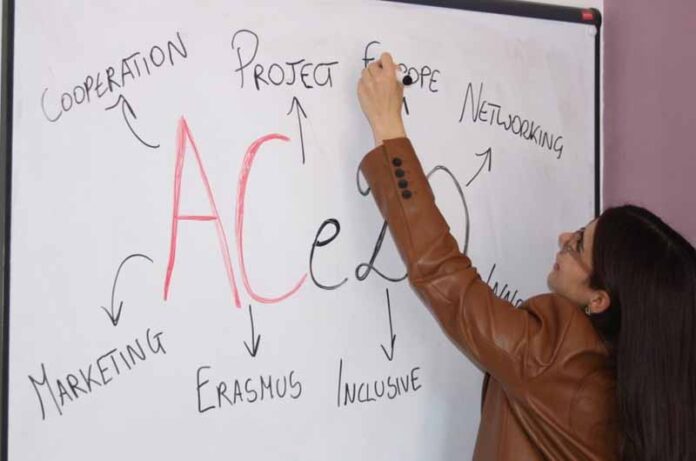 COOPERATION
PROJECT
EUROPE
NETWORKING
ACe2
INNO
MARKETING
ERASMUS
INCLUSIVE